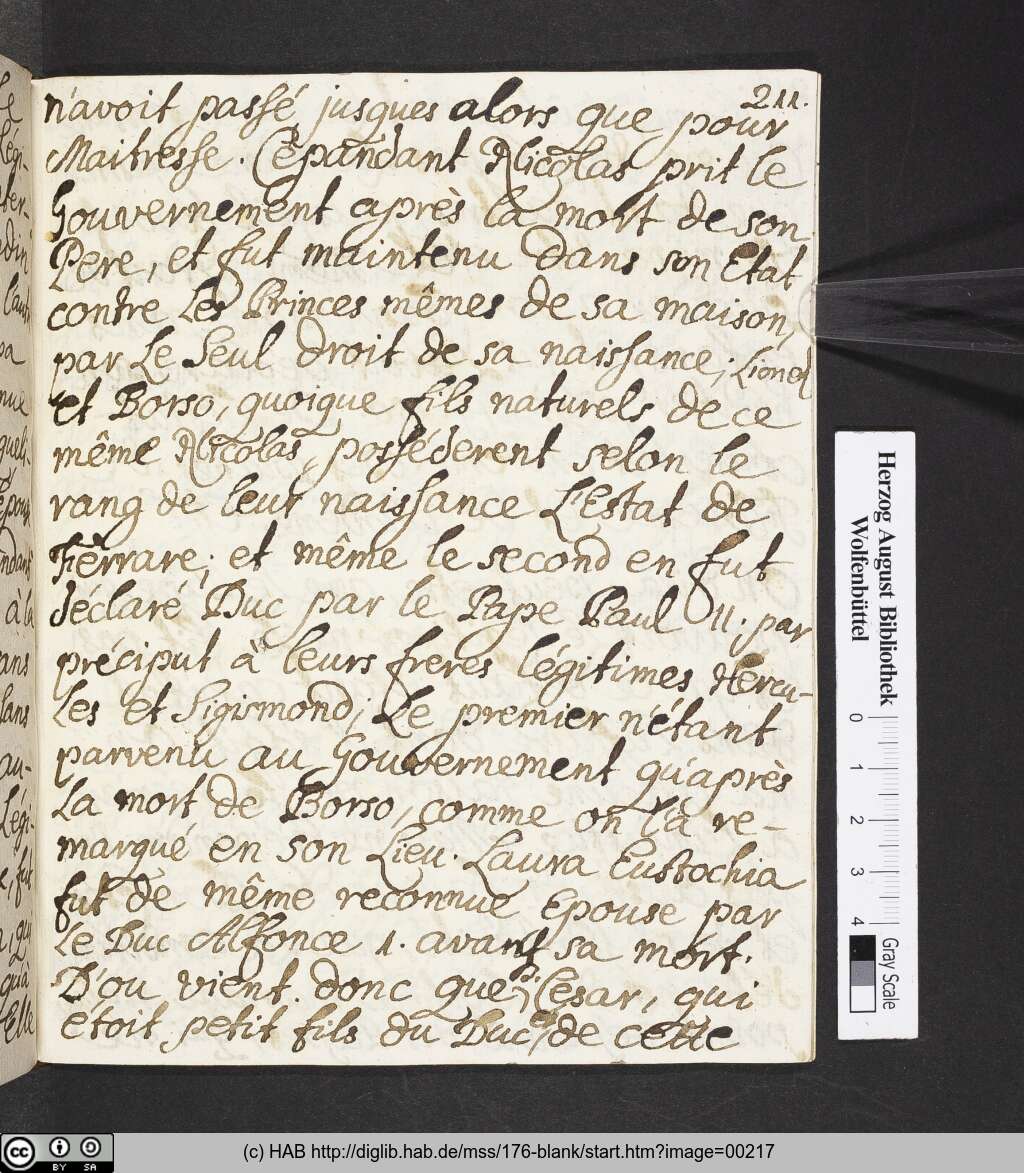 211.
n'avoit passé jusques alors que pour
Maitresse. Cépandant Nicolas prit le
Gouvernement après la mort de son
Pere, et fut maintenu dans son Etat
contre les Princes mêmes de sa maison,
par le seul droit de sa naissance; Lionel
et Borso, quoique fils naturels de ce
même Nicolas, posséderent selon le
rang de leur naissance l'Estat de
Ferrare; et même le second en fut
déclaré Duc par le Pape Paul II. par
préciput à leurs freres légitimes Hercu-
les et Sigismond; Le premier n'étant
parvenu au Gouvernement qu'après
la mort de Borso, comme on l'a re-
marqué en son Lieu. Laura Eustochia
fut de même reconnue Epouse par
le Duc Alfonce 1. avant sa mort.
D'ou vient donc que Cesar, qui
étoit petit fils du Duc, de cette
Herzog August Bibliothek
Wolfenbüttel
0 1 2 3 4
Gray Scale
cc BY SA
(c) HAB http://diglib.hab.de/mss/176-blank/start.htm?image=00217